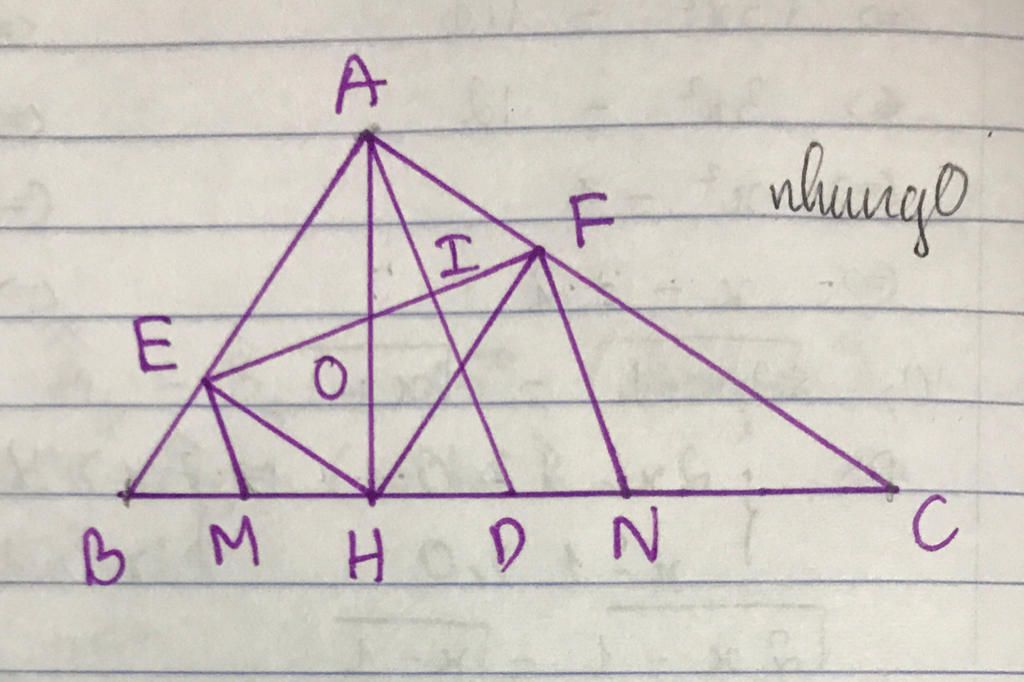 A
nhungO
F
I
E
O
B M H D N C